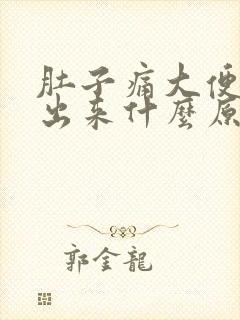 肚子痛大便
出来什麼原
郭金龍